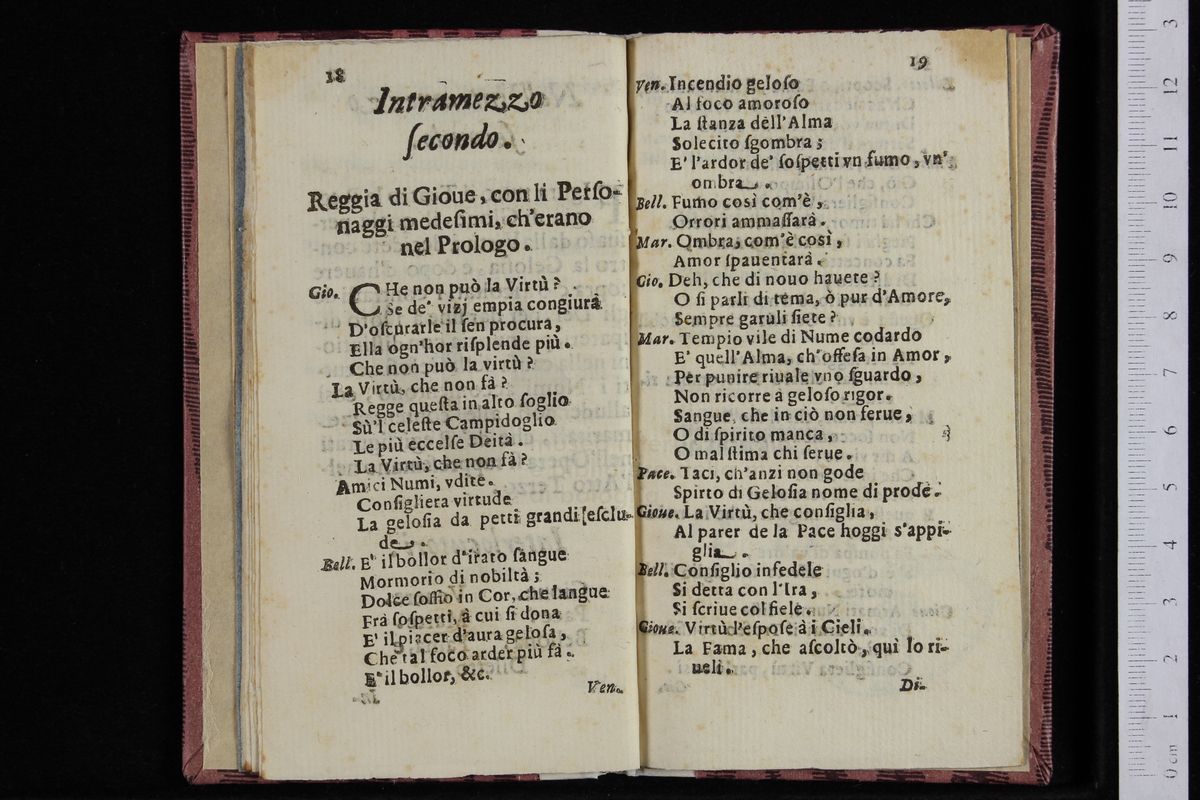 18
Intramezzo
ſecondo.
Reggia di Gioue, con li Perſo-
naggi medeſimi, ch'erano
nel Prologo.
Gio. CHe non può la Virtù?
Se de' vizj empia congiura
D'oſcurarle il ſen procura,
Ella ogn'hor riſplende più.
Che non può la virtù?
La Virtù, che non fà?
Regge queſta in alto ſoglio
Sù'l celeſte Campidoglio
Le più eccelſe Deità.
La Virtù, che non fà?
Amici Numi, vdite.
Conſigliera virtude
La geloſia da petti grandi eſclu-
de.
Bell. E' il bollor d'irato ſangue
Mormorio di nobiltà;
Dolce ſoffio in Cor, che langue
Frà ſoſpetti, à cui ſi dona
E' il piacer d'aura geloſa,
Che tal foco arder più fà.
E' il bollor, &c.
Ven.
19
Ven. Incendio geloſo
Al foco amoroſo
La ſtanza dell'Alma
Solecito ſgombra;
E' l'ardor de' ſoſpetti vn fumo, vn'
ombra.
Bell. Fumo così com'è,
Orrori ammaſſarà.
Mar. Ombra, com'è così,
Amor ſpauentarà.
Gio. Deh, che di nouo hauete?
O ſi parli di tema, ò pur d'Amore,
Sempre garuli ſiete?
Mar. Tempio vile di Nume codardo
E' quell'Alma, ch'offeſa in Amor,
Per punire riuale vno ſguardo,
Non ricorre à geloſo rigor.
Sangue, che in ciò non ferue,
O di ſpirito manca,
O mal ſtima chi ſerue.
Pace. Taci, ch'anzi non gode
Spirto di Geloſia nome di prode.
Gioue. La Virtù, che conſiglia,
Al parer de la Pace hoggi s'appi-
glia.
Bell. Conſiglio infedele
Si detta con l'Ira,
Si ſcriue col fiele.
Gioue. Virtù l'eſpoſe à i Cieli.
La Fama, che aſcoltò, quì lo ri-
ueli.
Di-
0 cm 1 2 3 4 5 6 7 8 9 10 11 12 3